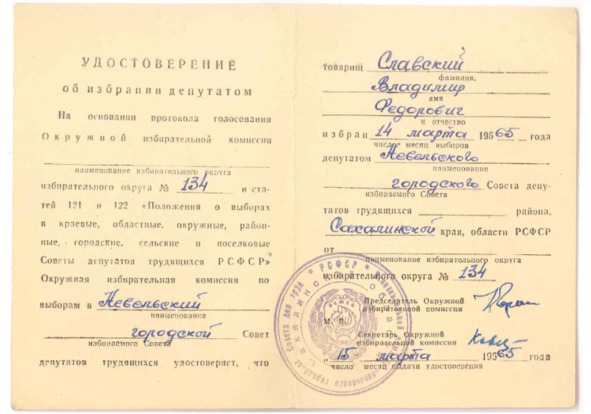 УДОСТОВЕРЕНИЕ
об избрании депутатом
На основании протокола голосования
Окружной избирательной комиссии
наименование избирательного округа
избирательного округа № 134 и ста-
тей 121 и 122 «Положения о выборах
в краевые, областные, окружные, район-
ные, городские, сельские и поселковые
Советы депутатов трудящихся РСФСР»
Окружная избирательная комиссия по
выборам в Невельский
городской Совет
избираемого Совета
депутатов трудящихся удостоверяет, что
товарищ Славский
фамилия,
Владимир
имя
Федорович
и отчество
избран 14 марта 195665 года
число месяц выборов
депутатом Невельского
наименование
городского Совета депу-
избираемого Совета
татов трудящихся района,
Сахалинской края, области РСФСР
от
наименование избирательного округа
избирательного округа № 134
Председатель Окружной
избирательной комиссии
М. п.
Секретарь Окружной
избирательной комиссии
„15" марта 195665 года
число месяц выдачи удостоверения
РСФСР